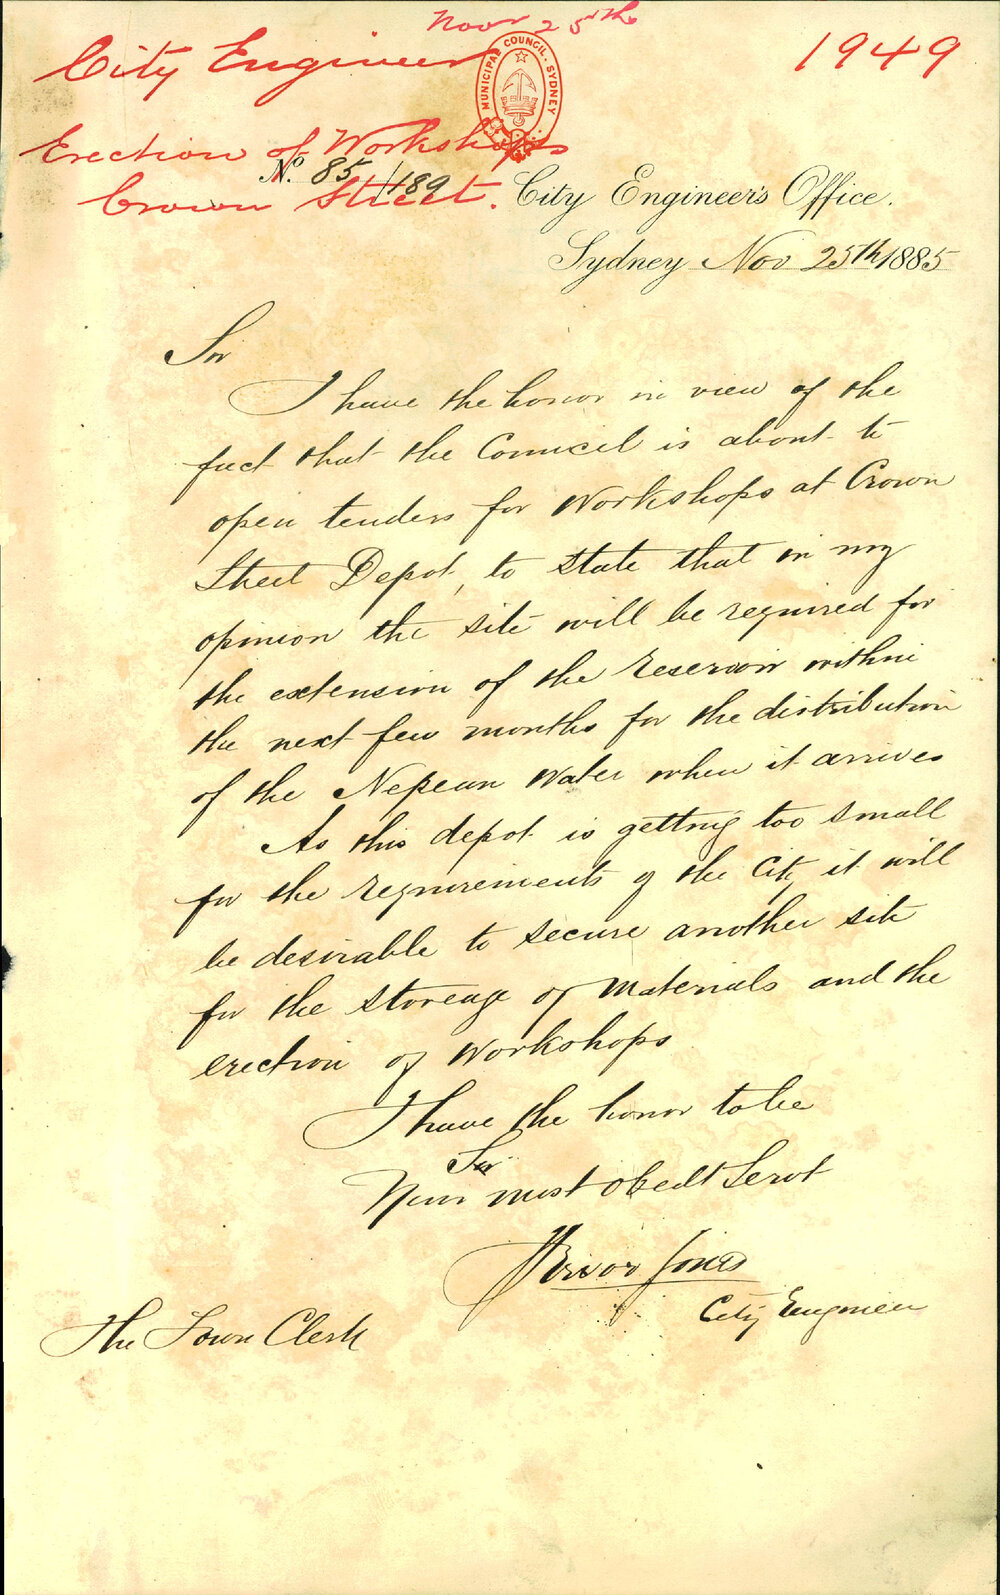 Novr 25th
City Engineer
1949
MUNICIPAL COUNCIL. SYDNEY
Erection of Workshops
Crown Street.
No. 85/189
City Engineer's Office.
Sydney Nov 25th 1885
Sir
I have the honor in view of the
fact that the Council is about to
open tenders for Workshops at Crown
Street Depot, to state that in my
opinion the site will be required for
the extension of the reservoir within
the next few months for the distribution
of the Nepean Water when it arrives
As this depot is getting too small
for the requirements of the City it will
be desirable to secure another site
for the storeage of Materials and the
erection of Workshops
I have the honor to be
Sir
Your most obedt Servt
Trevor Jones
City Engineer
The Town Clerk